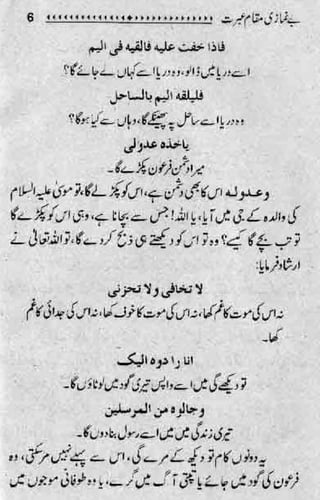 بے نمازی مقام عبرت 6
فاذا خفت علیه فالقیه فی الیم
اسے دریا میں ڈالو، وہ دریا اسے کہاں لے جائے گا؟
فلیلقه الیم بالساحل
وہ دریا اسے ساحل پہ پھینکے گا، وہاں سے کیا ہوگا؟
یاخذه عدولی
میرا دشمن فرعون پکڑے گا۔
وعدوله اس کا بھی دشمن ہے، اس کو پکڑ لے گا، تو موسیٰ علیہ السلام
کی والدہ کے جی میں آیا، یا اللہ! جس سے بچانا ہے، وہی اس کو پکڑے گا
تو تب بچے گا کیسے؟ وہ تو اس کو دیکھتے ہی ذبح کر دے گا، تو اللہ تعالیٰ نے
ارشاد فرمایا:
لا تخافی ولا تحزنی
نہ اس کی موت کا غم کھا، نہ اس کی موت کا خوف کھا، نہ اس کی جدائی کا غم
کھا۔
انا را دوہ الیک
تو دیکھے گی میں اسے واپس تیری گود میں لوٹاؤں گا۔
وجالوہ من المرسلین
تیری زندگی میں میں اسے رسول بنا دوں گا۔
یہ دونوں کام تو دیکھ کے مرے گی، اس سے پہلے نہیں مر سکتی، وہ
فرعون کی گود میں جائے یا تپتی آگ میں گرے، یا وہ طوفانی موجوں میں